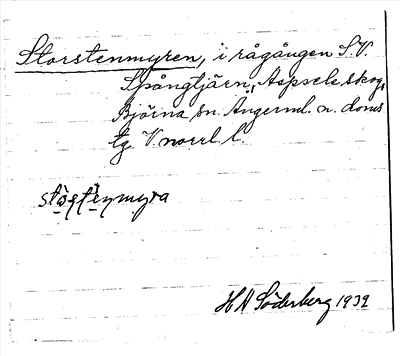 Storstenmyren, i rågången S.V.
Spångtjärn, Aspsele skog,
Björna sn. Ångerml. n. doms
tg V. norrl. l.
H A Söderberg 1932